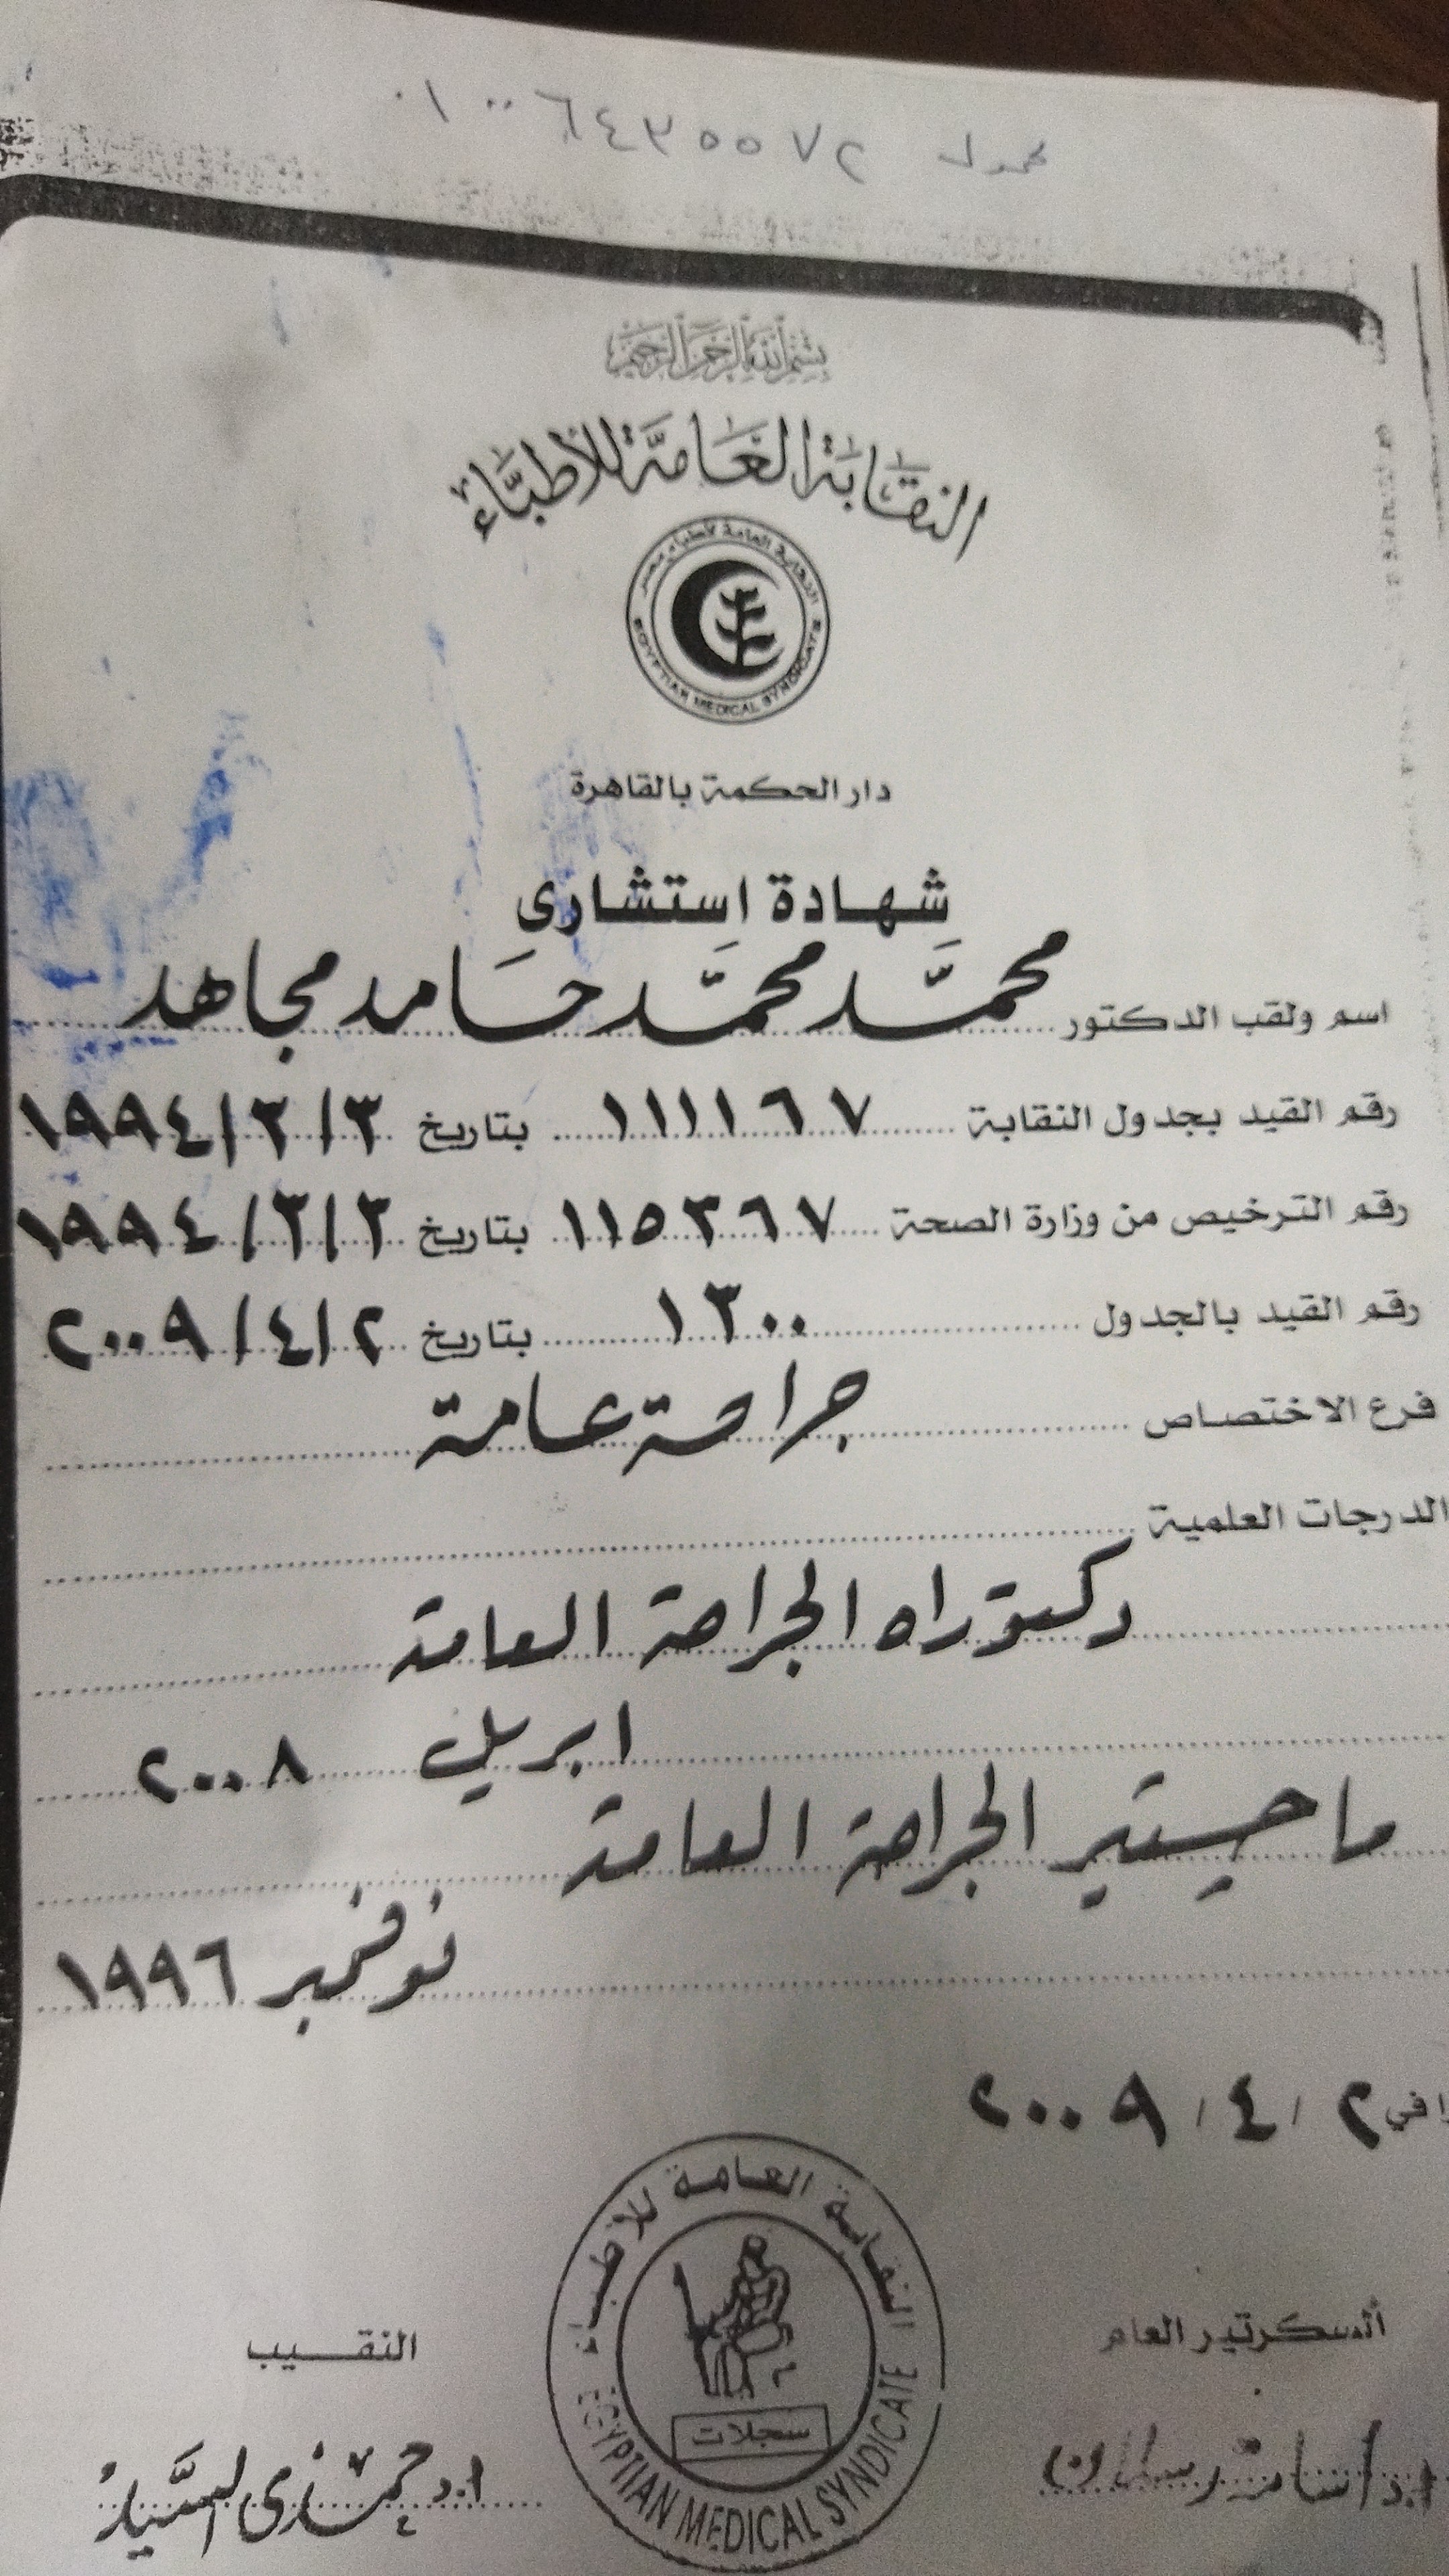 محمول ٠١٠٠٦٤٣٥٥٧٢
بسم الله الرحمن الرحيم
النقابة العامة للأطباء
النقابة العامة لأطباء مصر
EGYPTIAN MEDICAL SYNDICATE
دار الحكمة بالقاهرة
شهادة استشارى
اسم ولقب الدكتور محمد محمد حامد مجاهد
رقم القيد بجدول النقابة ١١١١٦٧ بتاريخ ٣/٣/١٩٩٤
رقم الترخيص من وزارة الصحة ١١٥٣٦٧ بتاريخ ٣/٣/١٩٩٤
رقم القيد بالجدول ١٣٠٠ بتاريخ ٢/٤/٢٠٠٩
فرع الاختصاص جراحة عامة
الدرجات العلمية
دكتوراه الجراحة العامة
ابريل ٢٠٠٨
ماجستير الجراحة العامة
نوفمبر ١٩٩٦
في ٢/٤/٢٠٠٩
النقابة العامة للأطباء
السكرتير العام
النقيب
سجلات
EGYPTIAN MEDICAL SYNDICATE
ا.د أسامة رسلان
ا.د حمدى السيد